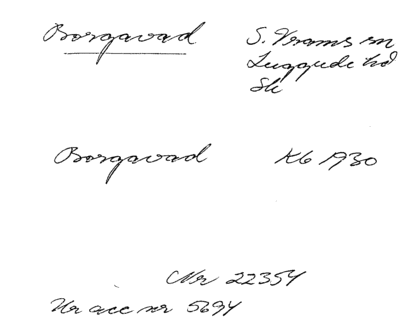 Borgavad S. Vrams sn
Luggude hd
Sk
Borgavad Kb 1930
Nr 22354
Ur acc nr 5694